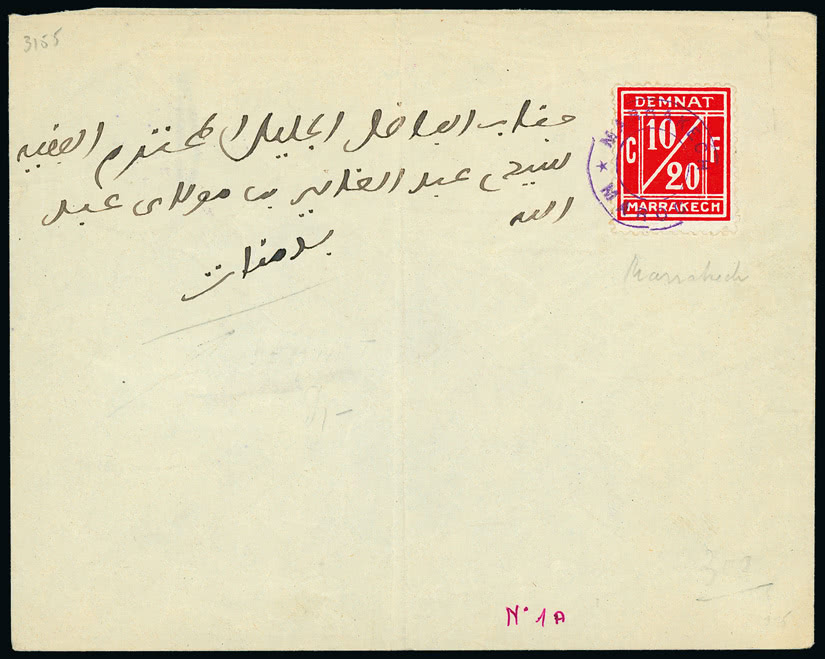 3155
جناب الفاضل الجليل المحترم الفقيه
سيدي عبد القادر بن مولاي عبد
الله
بدمنات
DEMNAT
C 10/20 F
MARRAKECH
Marrakech
N° 1A